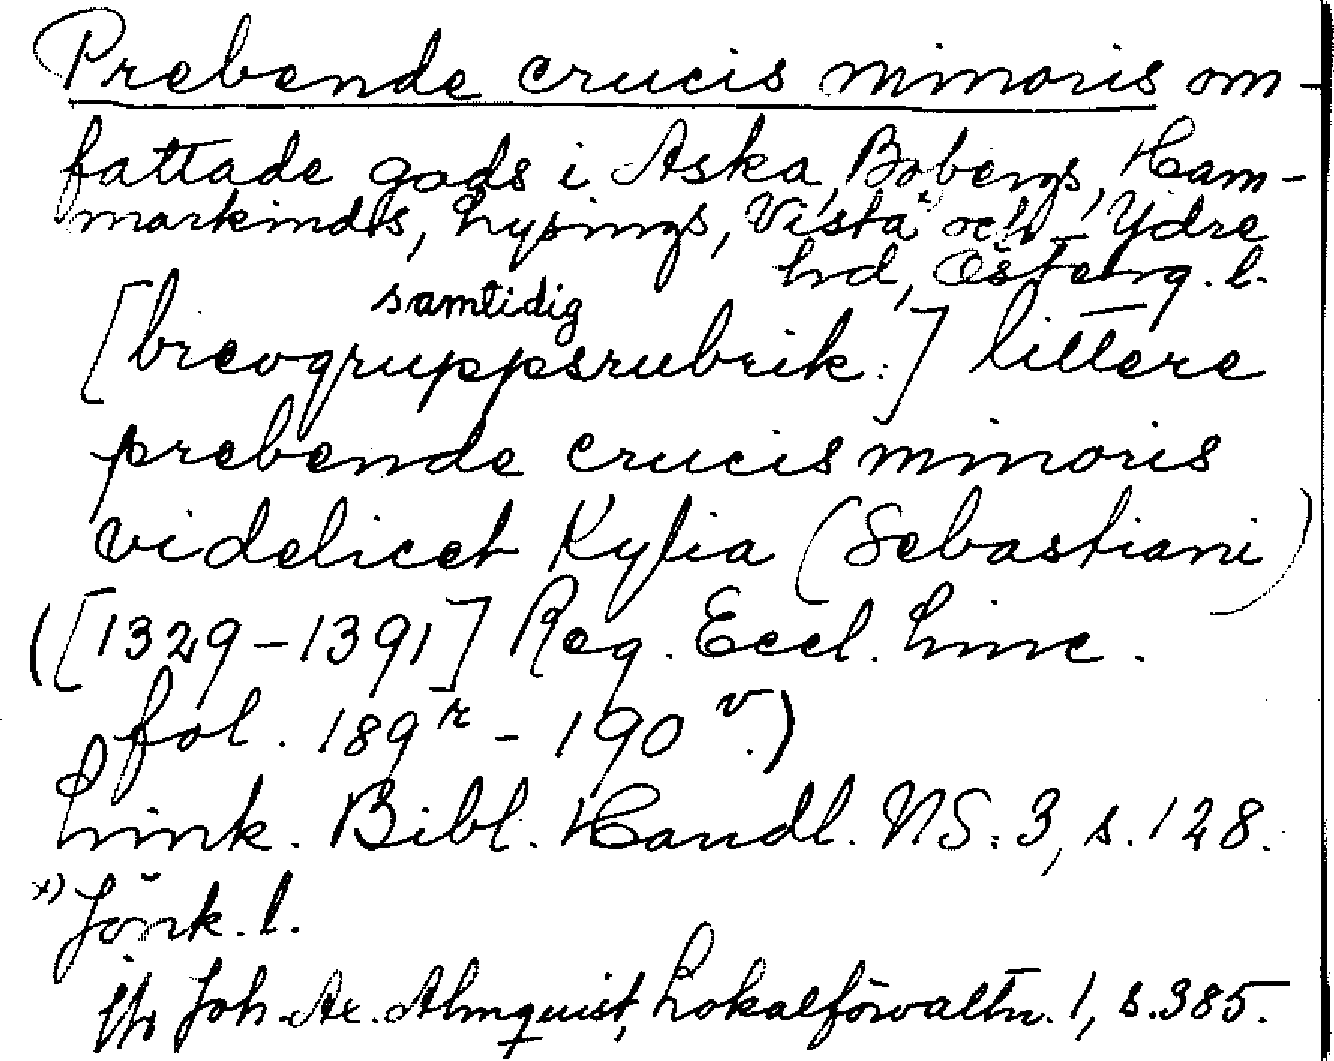 Prebende crucis minoris om-
fattade gods i Aska, Bobergs, Ham-
markinds, Lysings, Vista x) och Ydre
hrd, Österg. l.
samtidig
[brevgruppsrubrik:] littere
prebende crucis minoris
videlicet Kylia (Sebastiani)
([1329-1391] Reg. Eccl. Linc.
fol. 189r - 190v.)
Link. Bibl. Handl. NS: 3, s. 128.
x) Jönk. l.
jfr Joh. Ax. Almquist, Lokalförvaltn. 1, s. 385.